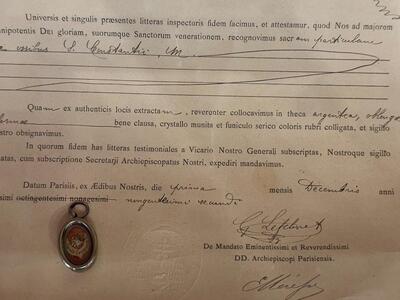 Universis et singulis præsentes litteras inspecturis fidem facimus, et attestamur, quod Nos ad majorem
nipotentis DEI gloriam, suorumque Sanctorum venerationem, recognovimus sacram particulam
ossibus S. Constantii M.
Quam ex authenticis locis extractam, reverenter collocavimus in theca argentea, oblonga
formae bene clausa, crystallo munita et funiculo serico coloris rubri colligata, et sigillo
ostro obsignavimus.
In quorum fidem has litteras testimoniales a Vicario Nostro Generali subscriptas, Nostroque sigillo
atas, cum subscriptione Secretarii Archiepiscopatus Nostri, expediri mandavimus.
Datum Parisiis, ex Ædibus Nostris, die prima mensis Decembris anni
simi octingentesimi nonagesimi nongentesimi secundi
G Lefebvre
De Mandato Eminentissimi et Reverendissimi
DD. Archiepiscopi Parisiensis.